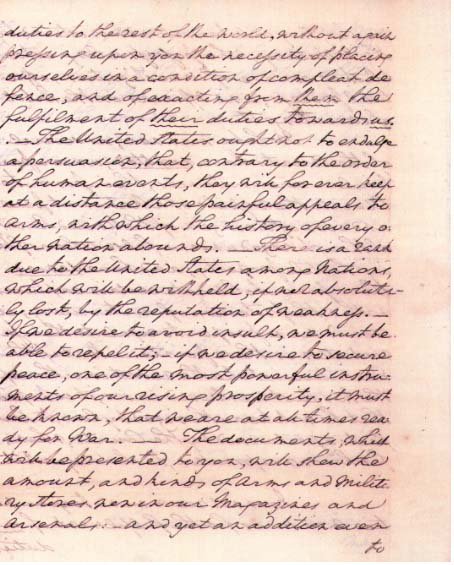 duties to the rest of the world, without again
pressing upon you the necessity of placing
ourselves in a condition of compleat de
fence, and of exacting from them the
fulfilment of their duties towards us.
.— The United States ought not to endulge
a persuasion, that, contrary to the order
of human events, they will for ever keep
at a distance those painful appeals to
arms, with which the history of every o-
ther nation abounds. — There is a rank
due to the United States among Nations,
which will be withheld, if not absolute-
ly lost, by the reputation of weakness. —
If we desire to avoid insult, we must be
able to repel it; — if we desire to secure
peace, one of the most powerful instru-
ments of our rising prosperity, it must
be known, that we are at all times rea
dy for War. — The documents, which
will be presented to you, will shew the
amount, and kinds of Arms and Milita
ry stores now in our Magazines and
Arsenals: — and yet an addition even
to